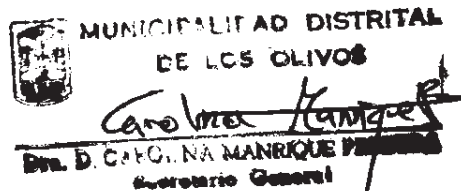 MUNICIPALIDAD DISTRITAL
DE LOS OLIVOS
Carolina Manrique
D. CAROLINA MANRIQUE
Secretario General